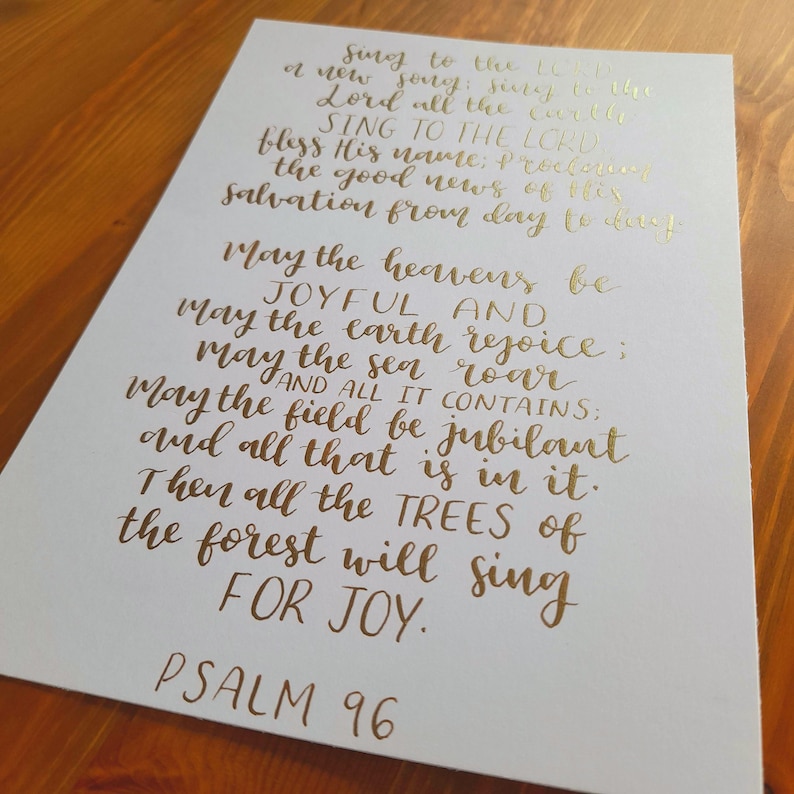 Sing to the LORD
a new song; sing to the
Lord all the earth
SING TO THE LORD,
bless His name; Proclaim
the good news of His
Salvation from day to day.
May the heavens be
JOYFUL AND
may the earth rejoice;
may the sea roar
AND ALL IT CONTAINS;
May the field be jubilant
and all that is in it.
Then all the TREES of
the forest will sing
FOR JOY.
PSALM 96